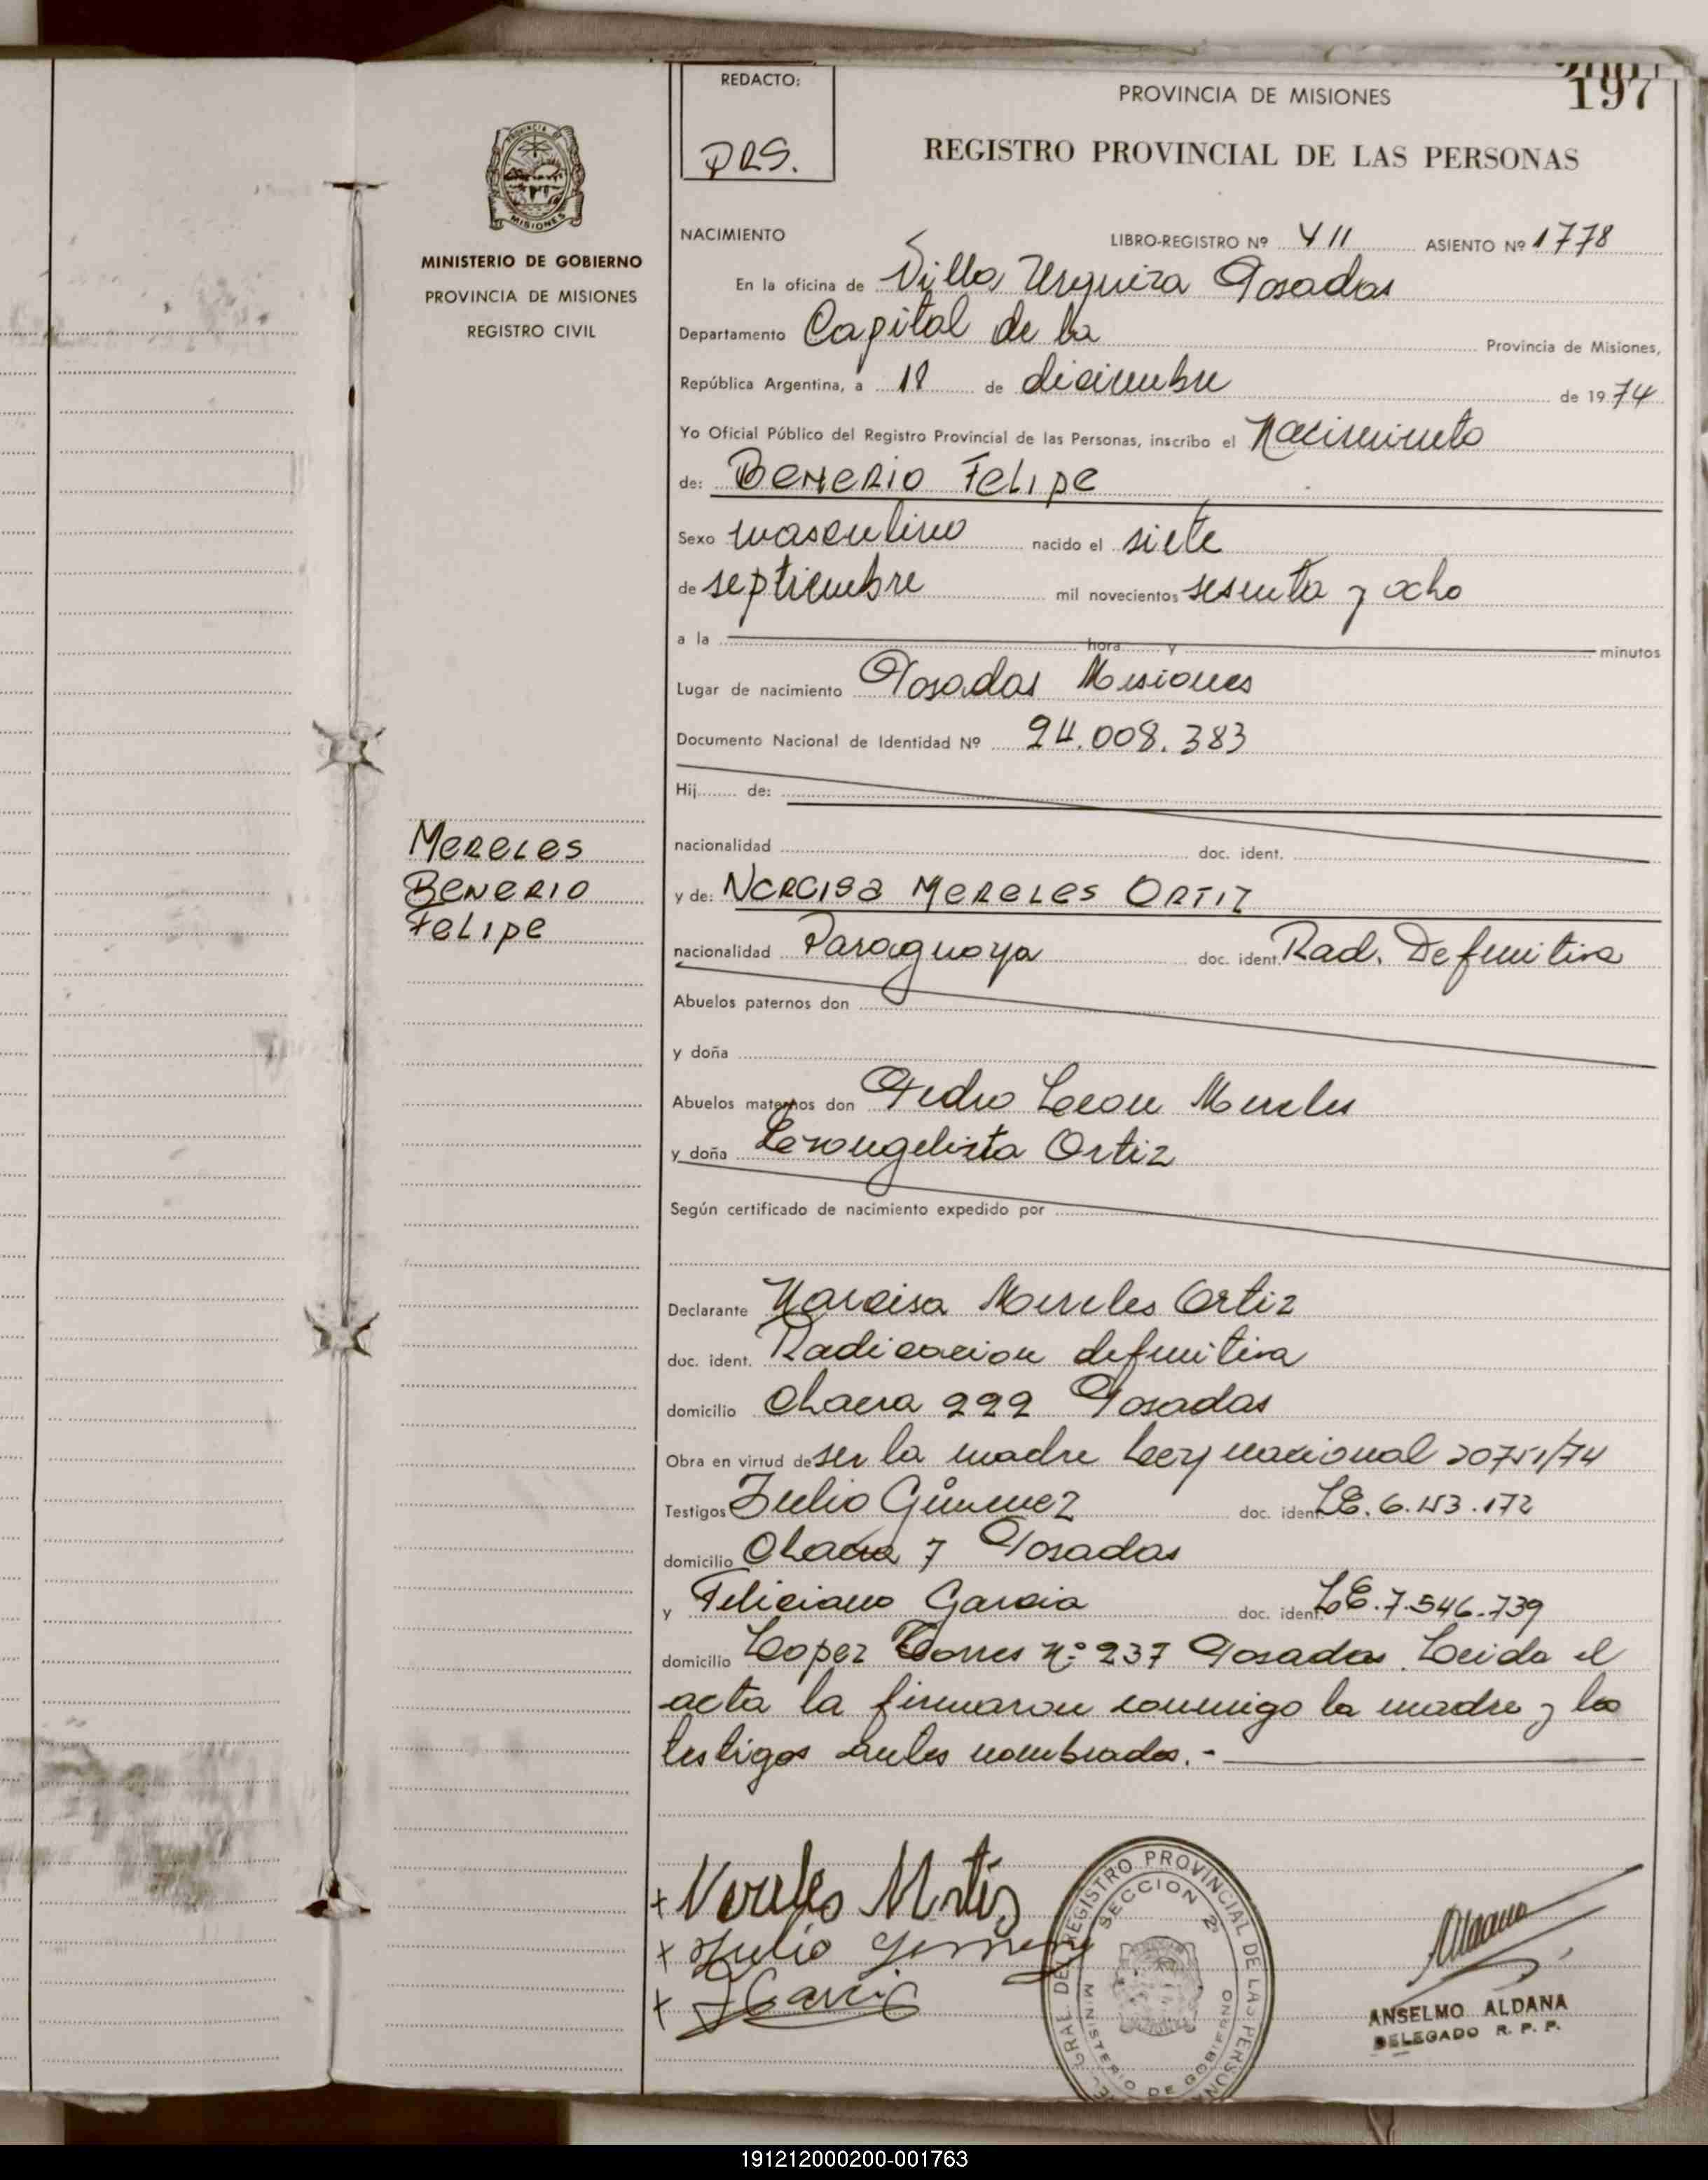 197
REDACTO:
DRS.
PROVINCIA DE MISIONES
REGISTRO PROVINCIAL DE LAS PERSONAS
PROVINCIA DE
MISIONES
MINISTERIO DE GOBIERNO
PROVINCIA DE MISIONES
REGISTRO CIVIL
Mereles
Benerio
Felipe
NACIMIENTO LIBRO-REGISTRO Nº 4 11 ASIENTO Nº 1778
En la oficina de Villa Urquiza Posadas
Departamento Capital de la Provincia de Misiones,
República Argentina, a 18 de diciembre de 1974
Yo Oficial Público del Registro Provincial de las Personas, inscribo el Nacimiento
de: Benerio Felipe
Sexo masculino nacido el siete
de septiembre mil novecientos sesenta y ocho
a la hora y minutos
Lugar de nacimiento Posadas Misiones
Documento Nacional de Identidad Nº 24.008.383
Hij de:
nacionalidad doc. ident.
y de: Narcisa Mereles Ortiz
nacionalidad Paraguaya doc. ident. Rad. Definitiva
Abuelos paternos don
y doña
Abuelos maternos don Pedro Leon Mereles
y doña Evangelista Ortiz
Según certificado de nacimiento expedido por
Declarante Narcisa Mereles Ortiz
doc. ident. Radicacion definitiva
domicilio Chacra 222 Posadas
Obra en virtud de ser la madre Ley nacional 20751/74
Testigos Julio Gimenez doc. ident. LE. 6.153.172
domicilio Chacra 7 Posadas
y Feliciano Garcia doc. ident. LE. 7.546.739
domicilio Lopez Torres Nº 237 Posadas. Leida el
acta la firmaron conmigo la madre y los
testigos antes nombrados.-
+ Mereles Ortiz
+ Julio Gimenez
+ F Garcia
REGISTRO PROVINCIAL DE LAS PERSONAS
SECCION 2ª
MINISTERIO DE GOBIERNO
Aldana
ANSELMO ALDANA
DELEGADO R. P. P.
191212000200-001763